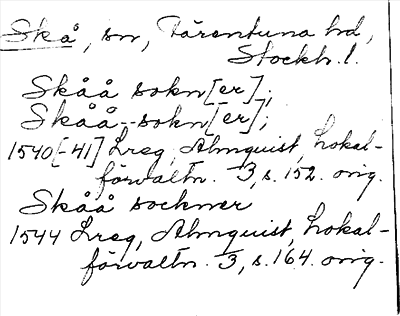 Skå, sn, Färentuna hd,
Stockh. l.
Skåå sokn[er];
Skåå--sokn[er];
1540[-41] Lreg, Almquist, Lokal-
förvaltn. 3, s. 152. orig.
Skåå sockner
1544 Lreg, Almquist, Lokal-
förvaltn. 3, s. 164. orig.